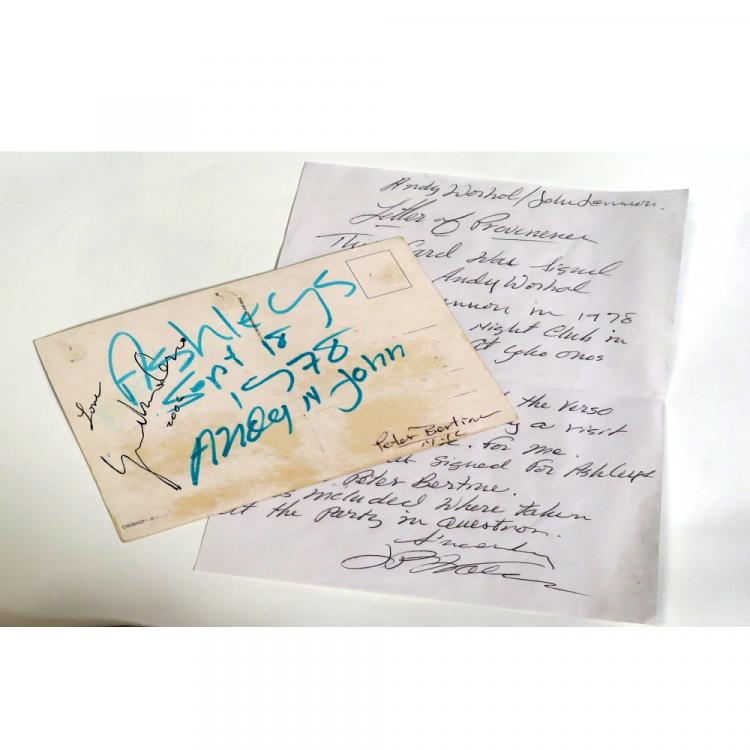 Ashleys
Sept 18
1978
Andy N John
Love
2005
Peter Bertine
N.Y.C
DESIGN
Andy Worhol/John Lennon.
Letter of Provenence
Card Was Signed
Andy Worhol
in 1978
Night Club in
Yoko Onos
the Verso
a visit
For me.
Signed For Ashleys
Peter Bertine.
included Where taken
at the Party in question.
Sincerely